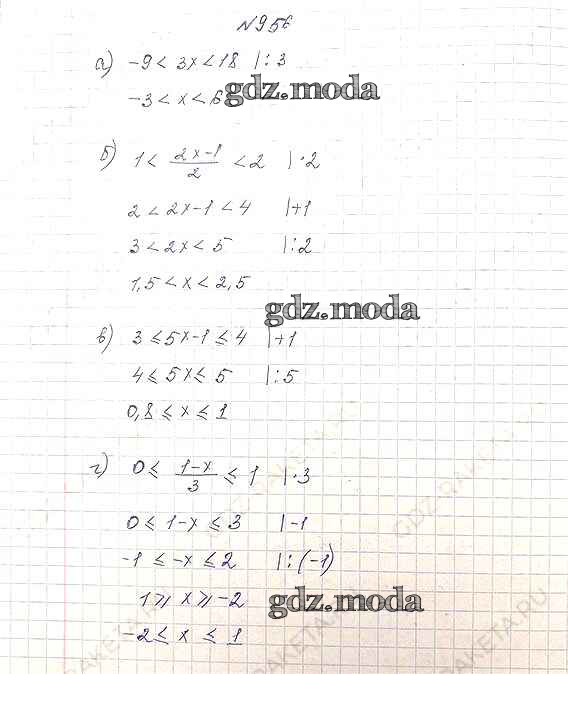 №956
а) -9 < 3x < 18 |:3
-3 < x < 6
gdz.moda
б) 1 < (2x-1)/2 < 2 |·2
2 < 2x-1 < 4 |+1
3 < 2x < 5 |:2
1,5 < x < 2,5
gdz.moda
в) 3 ≤ 5x-1 ≤ 4 |+1
4 ≤ 5x ≤ 5 |:5
0,8 ≤ x ≤ 1
г) 0 ≤ (1-x)/3 ≤ 1 |·3
GDZ-RAKETA.RU
0 ≤ 1-x ≤ 3 |-1
-1 ≤ -x ≤ 2 |:(-1)
1 ⩾ x ⩾ -2
gdz.moda
-2 ≤ x ≤ 1
RAKETA.RU